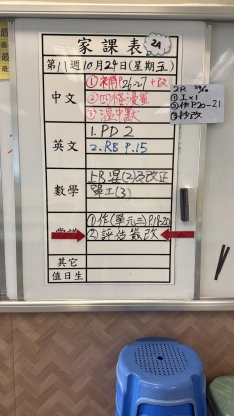 家課表
24
第11週10月24日(星期五)
中文
①補P.26-27+改
②四格漫畫
③溫中默
2R
①工x1
②作P.20-21
③抄改
英文
1. PD 2
2. RB P.15
數學
單工(3)
①作(單元三)P.18-20
②評估簽改
其它
值日生